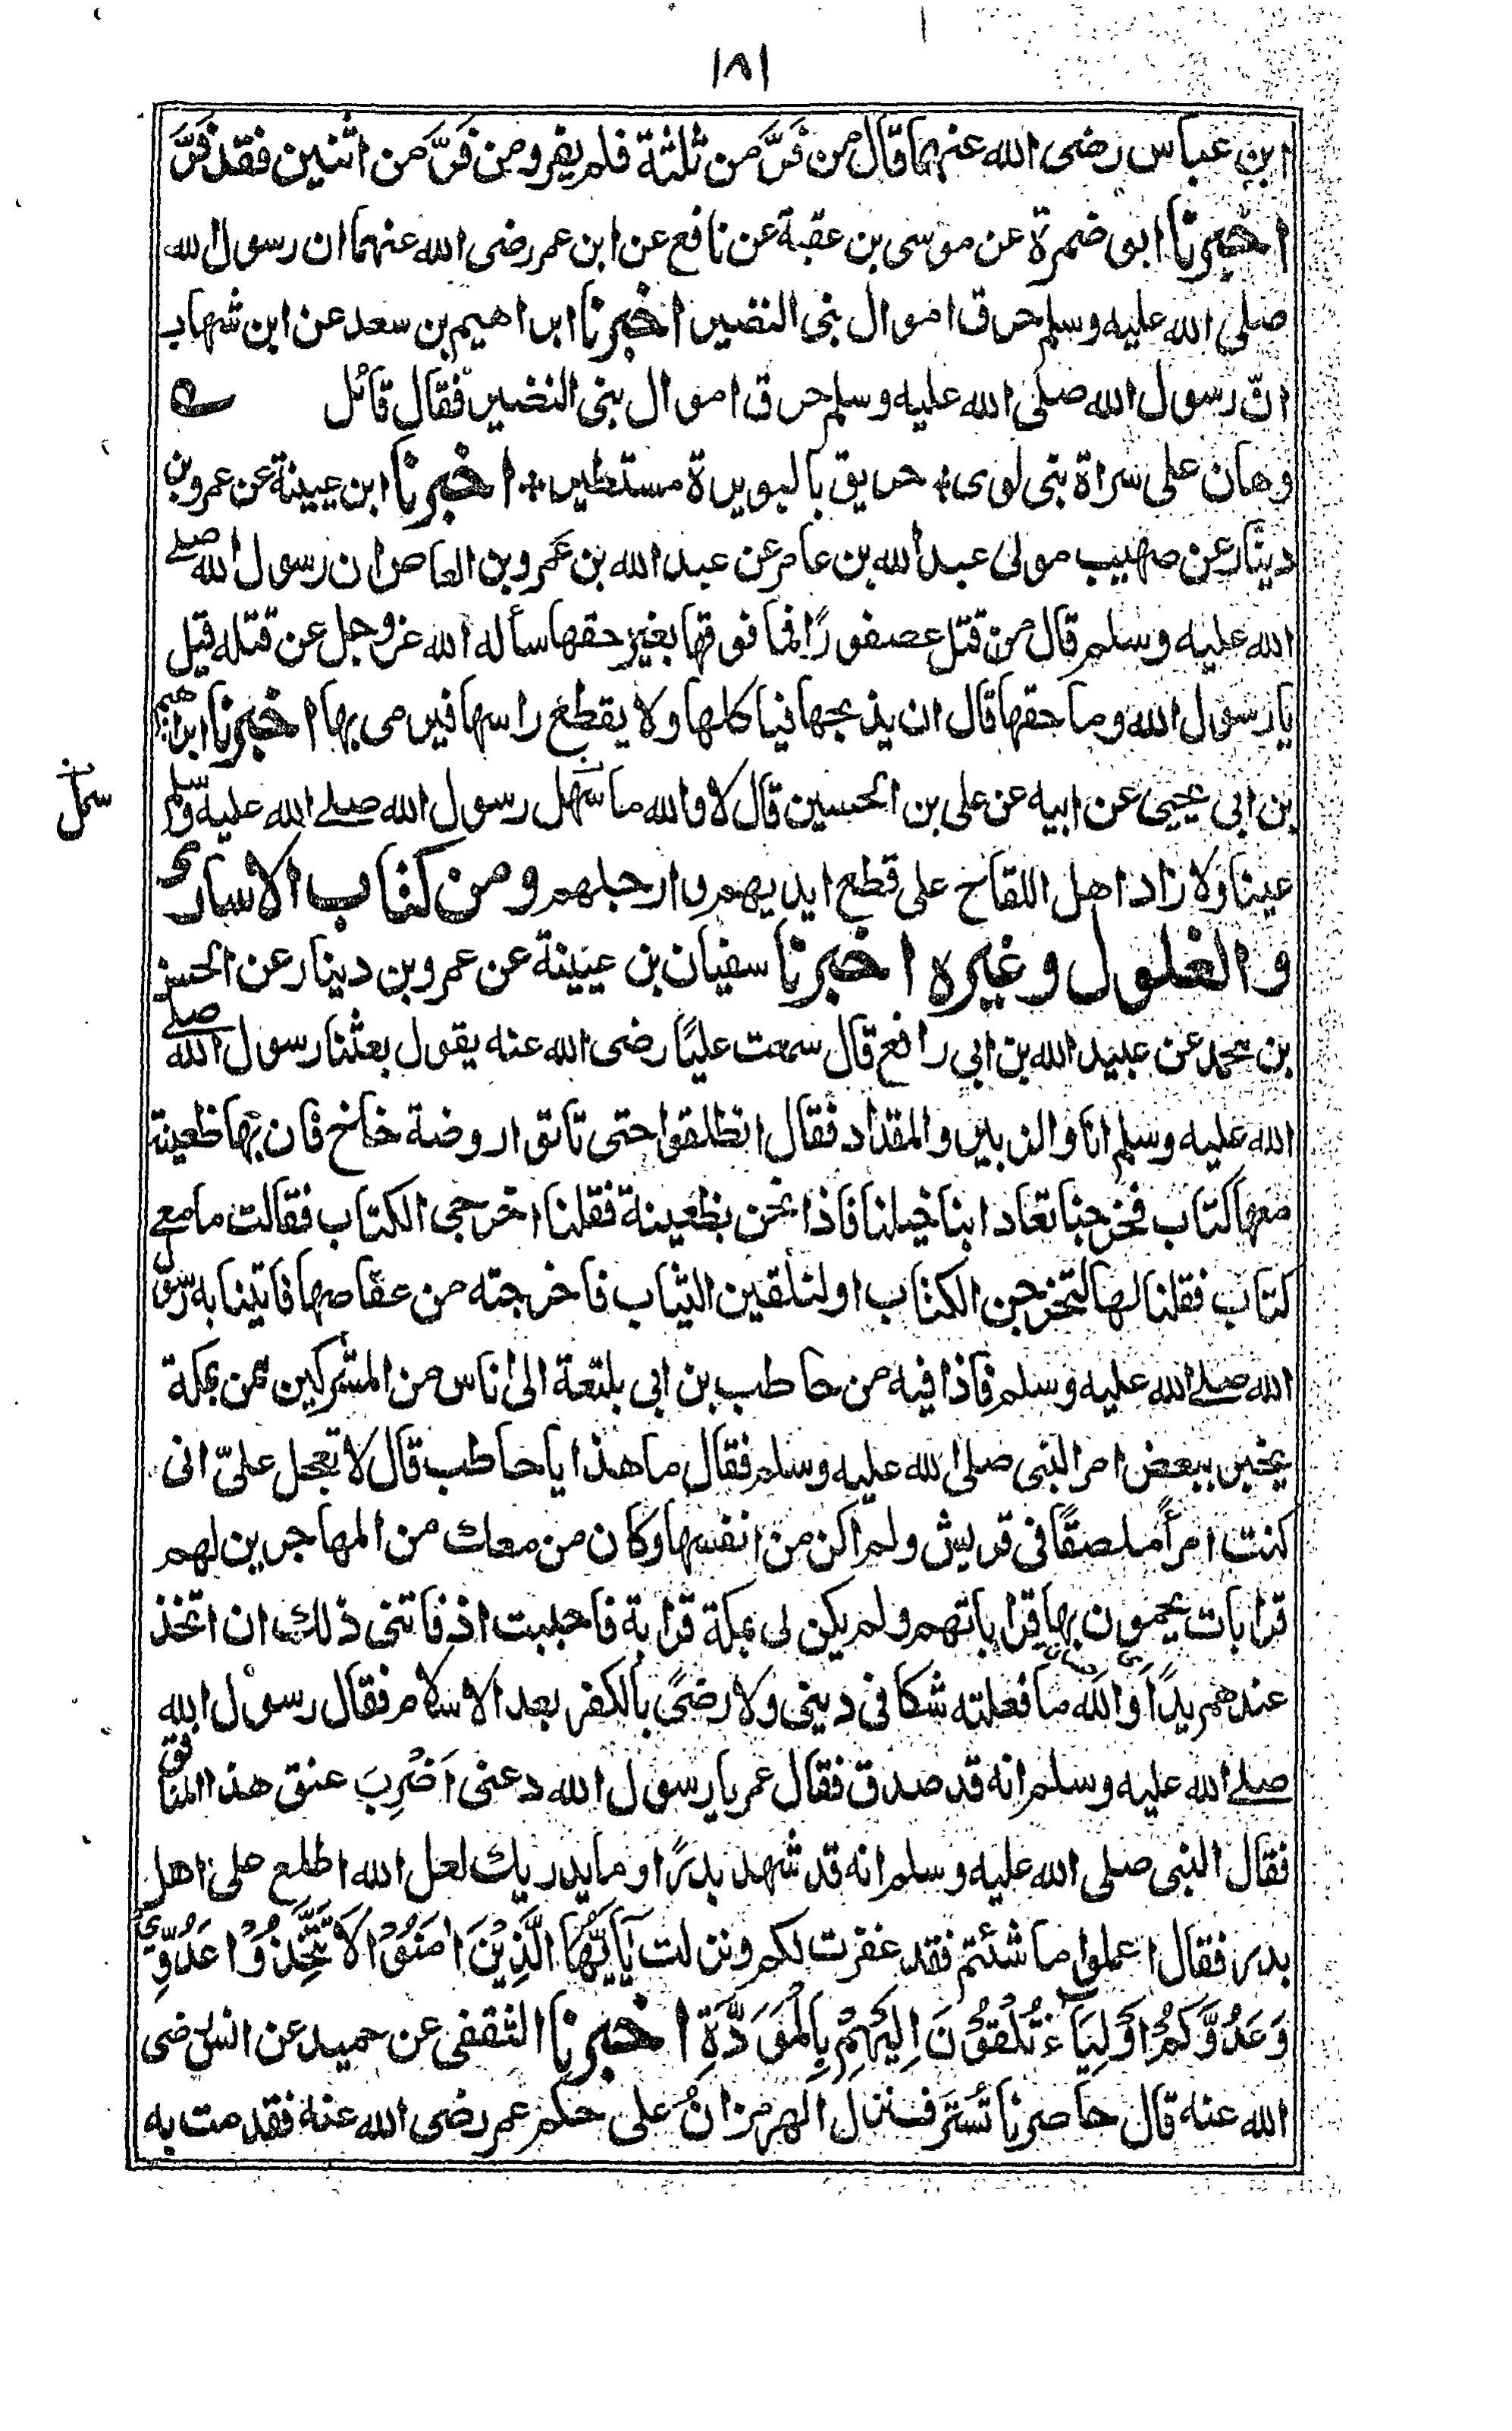 ١٨١
ابن عباس رضى الله عنهما قال من فَرَّ من ثلثة فلم يفرو من فَرَّ من اثنين فقد فَرَّ
اخبرنا ابو ضمرة عن موسى بن عقبة عن نافع عن ابن عمر رضى الله عنهما ان رسول الله
صلى الله عليه وسلم حرق اموال بنى النضير اخبرنا ابراهيم بن سعد عن ابن شهاب
انّ رسول الله صلى الله عليه وسلم حرق اموال بنى النضير فقال قائل
وهان على سراة بنى لوى * حريق بالبويرة مستطير * اخبرنا ابن عيينة عن عمرو بن
دينار عن صهيب مولى عبد الله بن عامر عن عبد الله بن عَمرو بن العاص ان رسول الله صلے
الله عليه وسلم قال من قتل عصفورًا فما فوقها بغير حقها سأله الله عز وجل عن قتله قيل
يا رسول الله وما حقها قال ان يذبحها فياكلها ولا يقطع راسها فيرمى بها اخبرنا ابراهيم
بن ابى يحيى عن ابيه عن على بن الحسين قال لا والله ما سهل رسول الله صلے الله عليه وسلم
سمل
عينا ولا زاد اهل اللقاح على قطع ايديهم وارجلهم ومن كتاب الاسارى
والغلول وغيره اخبرنا سفيان بن عيينة عن عمرو بن دينار عن الحسن
بن محمد عن عبيد الله بن ابى رافع قال سمعت عليًا رضى الله عنه يقول بعثنا رسول الله صلے
الله عليه وسلم انا والزبير والمقداد فقال انطلقوا حتى تاتوا روضة خاخ فان بها ظعينة
معها كتاب فخرجنا تعادا بنا خيلنا فاذا نحن بظعينة فقلنا اخرجى الكتاب فقالت ما معى
كتاب فقلنا لها لتخرجن الكتاب او لنلقين الثياب فاخرجته من عقاصها فاتينا به رسول
الله صلے الله عليه وسلم فاذا فيه من حاطب بن ابى بلتعة الى اناس من المشركين ممن بمكة
يخبر ببعض امر النبى صلى الله عليه وسلم فقال ما هذا يا حاطب قال لا تعجل علىّ انى
كنت امرأ ملصقًا فى قريش ولم اكن من انفسها وكان من معك من المهاجرين لهم
قرابات يحمون بها قراباتهم ولم يكن لى بمكة قرابة فاحببت اذ فاتنى ذلك ان اتخذ
عندهم يدًا والله ما فعلته شكا فى دينى ولا رضىً بالكفر بعد الاسلام فقال رسول الله
صلے الله عليه وسلم انه قد صدق فقال عمر يا رسول الله دعنى اَضْرِبَ عنق هذا المنافق
فقال النبى صلى الله عليه وسلم انه قد شهد بدرًا وما يدريك لعل الله اطلع على اهل
بدر فقال اعملوا ما شئتم فقد غفرت لكم ونزلت يَآ اَيُّهَا الَّذِيْنَ اٰمَنُوْا لَا تَتَّخِذُوْا عَدُوِّيْ
وَعَدُوَّكُمْ اَوْلِيَآءَ تُلْقُوْنَ اِلَيْهِمْ بِالْمَوَدَّةِ اخبرنا الثقفى عن حميد عن انس رضى
الله عنه قال حاصرنا تُستَر فنزل الهرمزانُ على حكم عمر رضى الله عنه فقدمت به